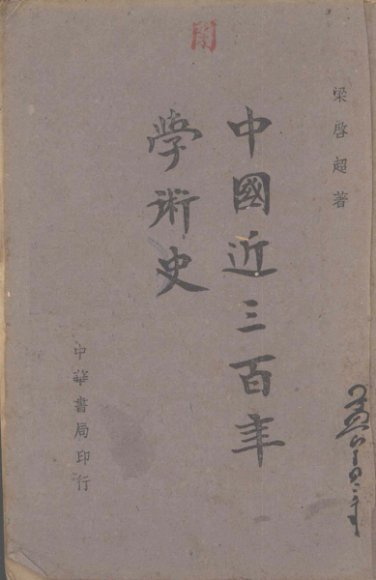 梁啓超著
中國近三百年
學術史
中華書局印行